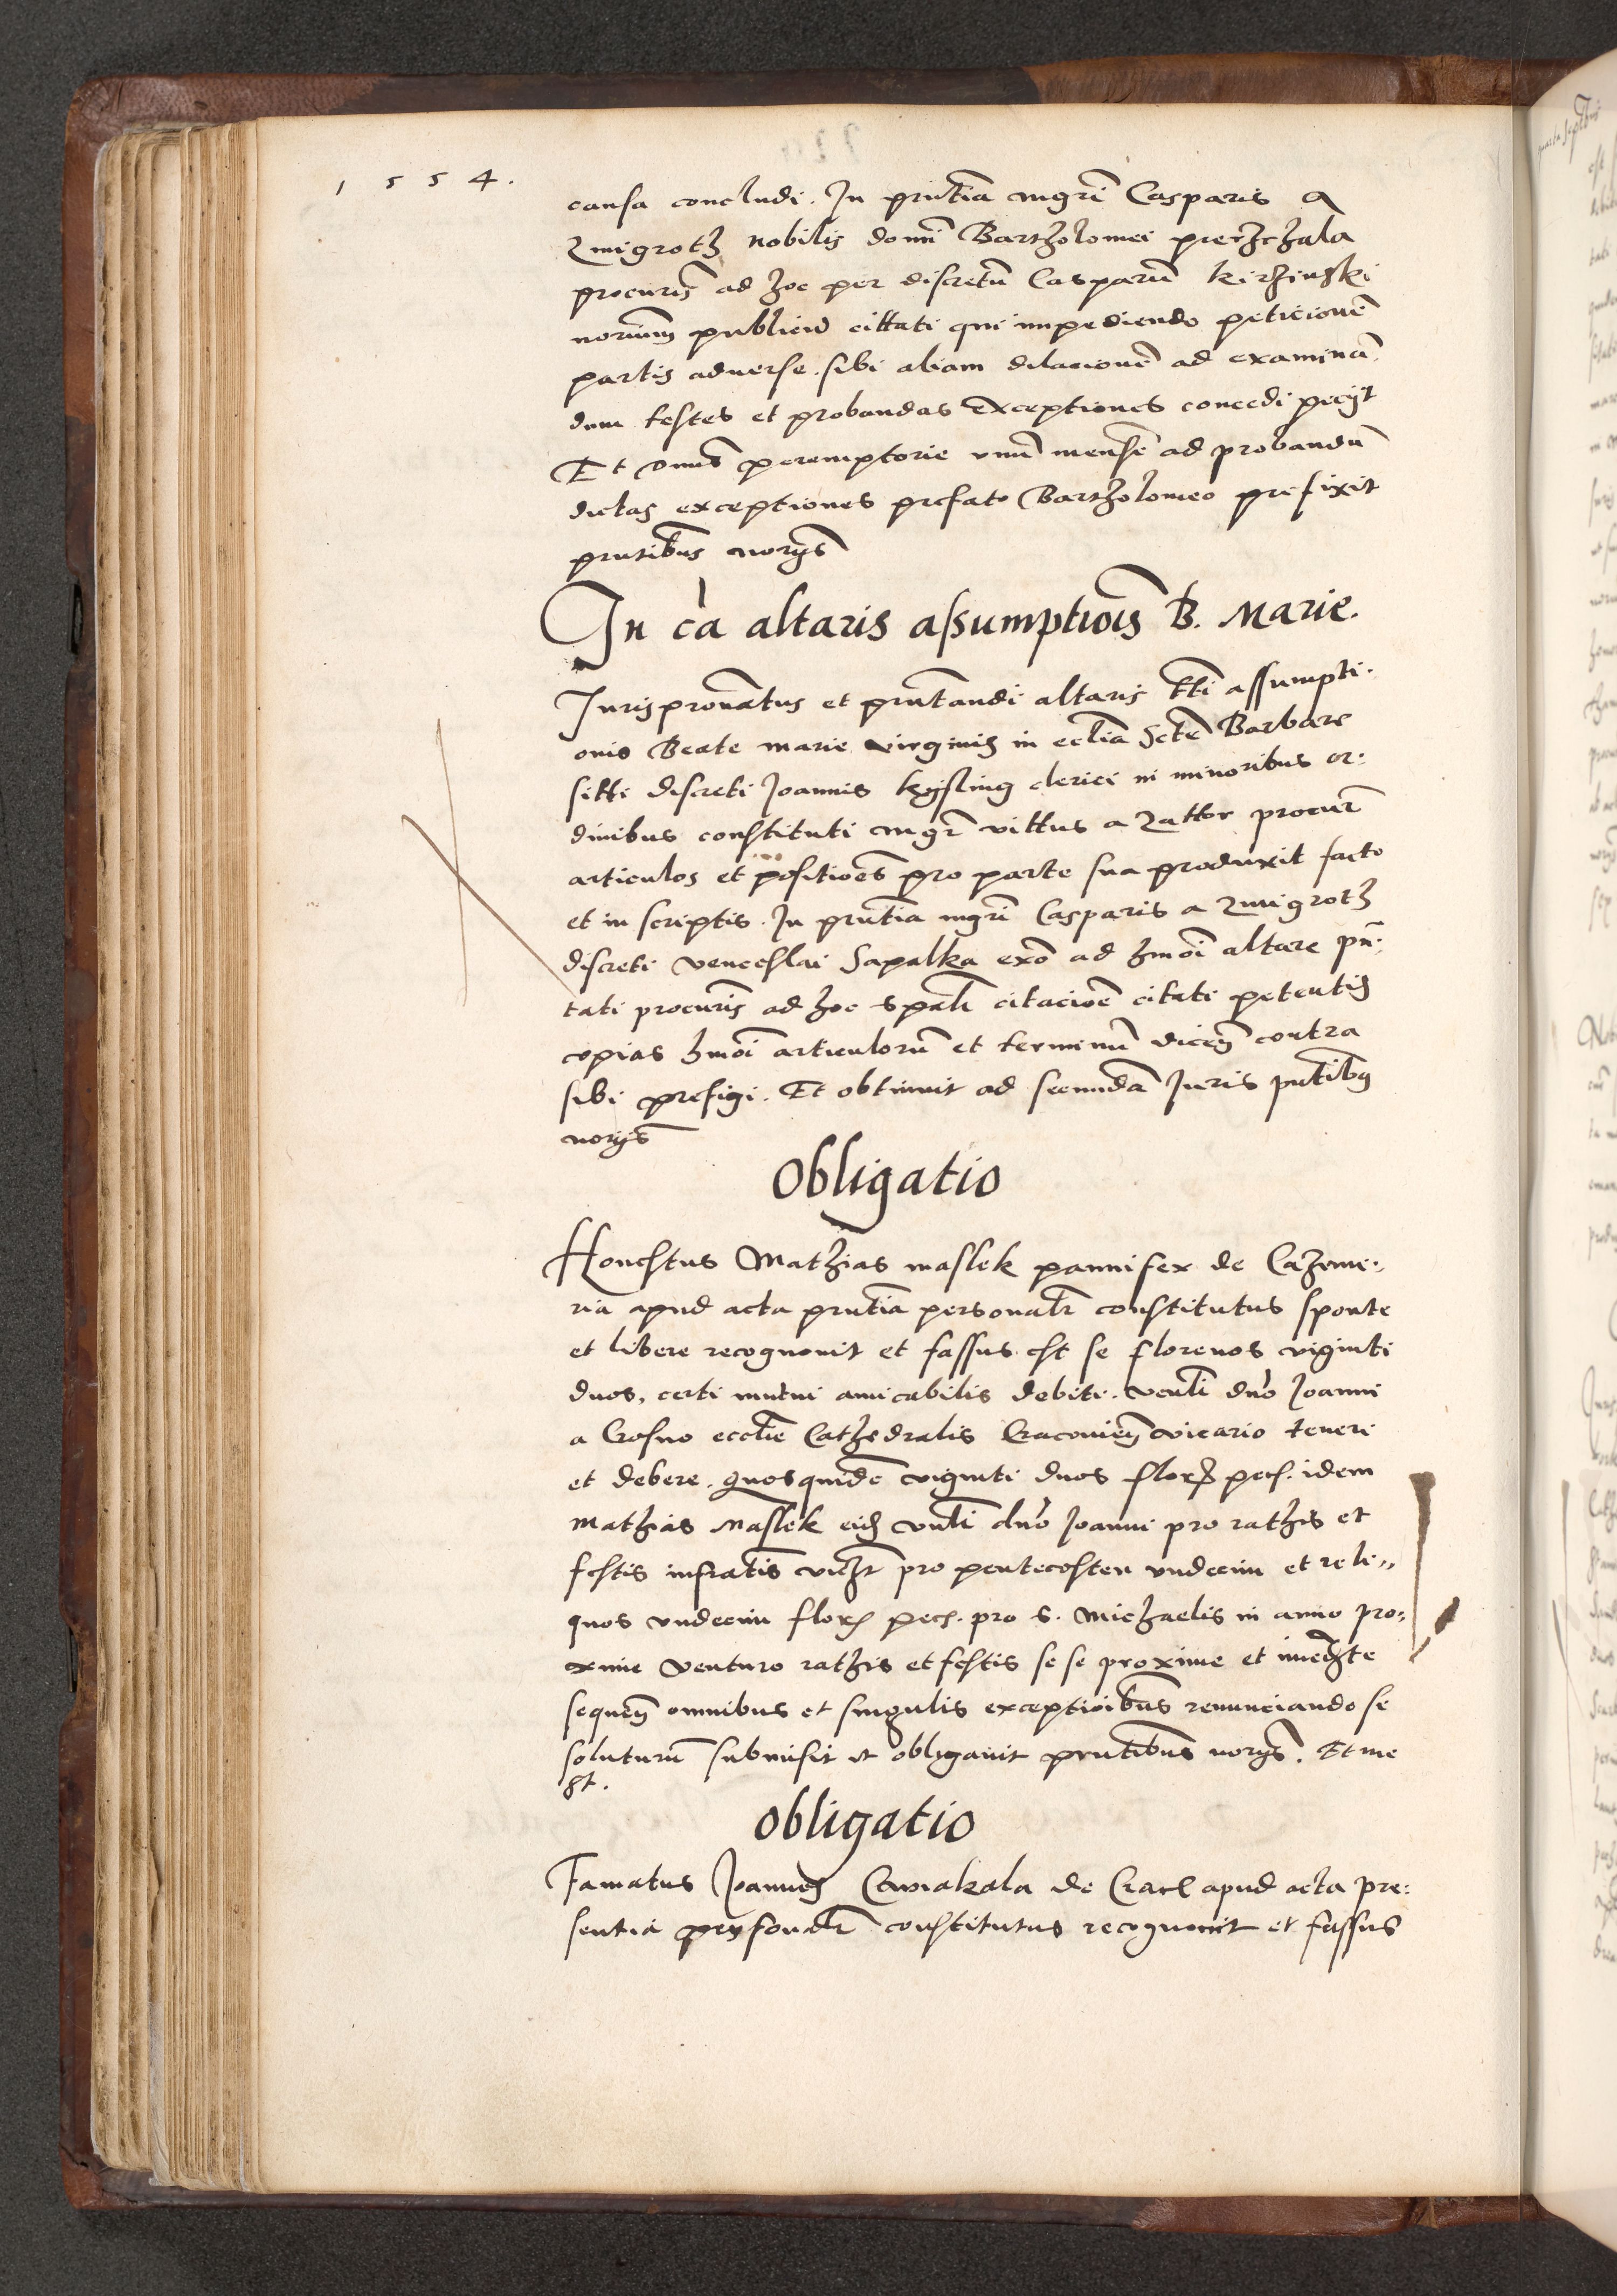 1554.
causa concludi. In pn̄tia mgrī Casparis a
Zmigroth nobilis domī Bartholomei
procur̄is ad hoc per discretū Casparū
nor̄ium publicū cittati qui impediendo peticionē
partis aduerse. sibi aliam dilacionē ad examinā-
dum testes et probandas exceptiones concedi pecijt
Et dnus peremptorie vnū mensē ad probandū
dictas exceptiones prefato Bartholomeo prefixit
pn̄tibus norijs
In cā altaris assumptiōis B. Marie.
Jurispronatus et pn̄tandi altaris ttī assumpti-
onis Beate marie virginis in ecl̄ia Sctē Barbare
sitti discreti Joannis kysling clerici in minoribus or-
dinibus constituti mgr̄ vittus a Zattor procur̄
articulos et positiōes pro parte sua produxit facto
et in scriptis. In pn̄tia mgrī Casparis a Zmigroth
discreti venceslai Sapalka exō ad hmōi altare pn̄-
tati procur̄is ad hoc spāli citaciōe citati petentis
copias hmōi articulorū et terminū dicen̄ contra
sibi prefigi. Et obtinuit ad secundā Juris pn̄tibus
norijs
Obligatio
Honestus Mathias maslek pannifex de Cazimi-
ria apud acta pn̄tia personalr̄ constitutus sponte
et libere recognouit et fassus est se florenos viginti
duos, certi mutui amicabilis debiti. venlī dnō Joanni
a Crosno ecclīe Cathedralis Cracovien̄ vicario teneri
et debere. Quosquidē viginti duos flor̄ pec. idem
mathias Maslek eid̄ vnlī dnō Joanni pro rathis et
festis infrātis vidzt pro pentecosten vndecim et reli-
quos vndecim flor̄ pec. pro S. Michaelis in anno pro-
xime venturo rathis et festis se se proxime et immedte
sequen̄ omnibus et singulis exceptiōibus renunciando se
soluturū submisit et obligauit pn̄tibus norijs. Et me
st.
Obligatio
Famatus Joannes de Crac̄ apud acta pre-
sentia personalr̄ constitutus recognouit et fassus